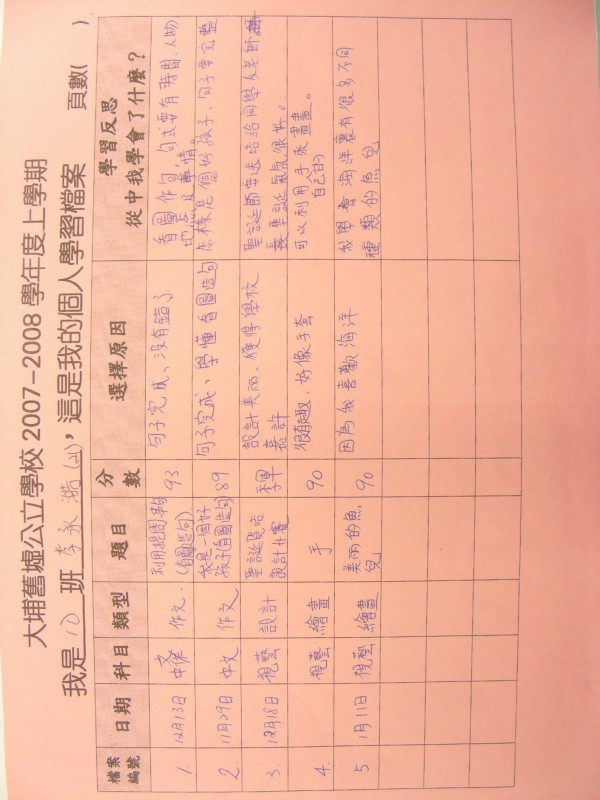 大埔舊墟公立學校 2007-2008 學年度上學期
我是 1D 班 李永澔(山), 這是我的個人學習檔案 頁數( )
檔案編號 日期 科目 類型 題目 分數 選擇原因 學習反思 從中我學會了什麼?
1. 12月13日 中文 作文. 利用提問 (看圖造句) 93 句子完成、沒有錯了 看圖作句, 句式要有時間、人物、地方及事情。
2. 11月29日 中文 作文 我是一個好孩子(看圖造句) 89 句子完成、學懂看圖造句 怎樣是個好孩子、句子要完整
3. 12月18日 視藝 設計 聖誕賀咭設計比賽 季軍 設計美麗、獲得學校嘉許 聖誕節要送咭給同學及老師 聖誕氣氛很好。
4. 視藝 繪畫 手 90 很有趣、好像手套 可以利用自己的手來畫畫。
5 1月11日 視藝 繪畫 美麗的魚兒 90 因為我喜歡海洋 我學會海洋裏有很多不同種類的魚兒